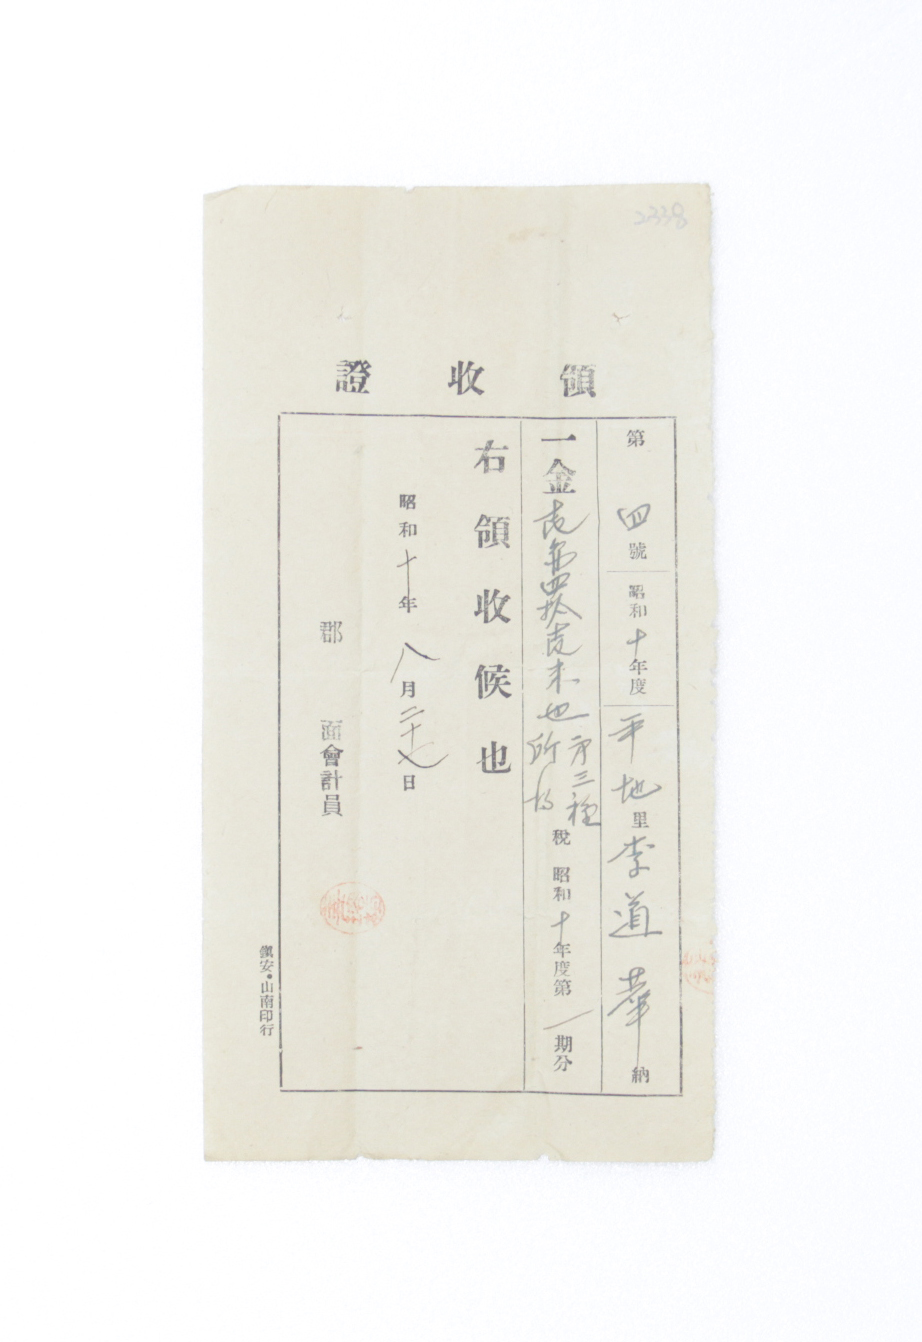 2338
領收證
第四號 昭和十年度 平地里 李道華 納
一金壱円四拾壱銭也 第三種所得税 昭和十年度第一期分
右領收候也
昭和十年八月二十七日
郡 面會計員
安・山南印行